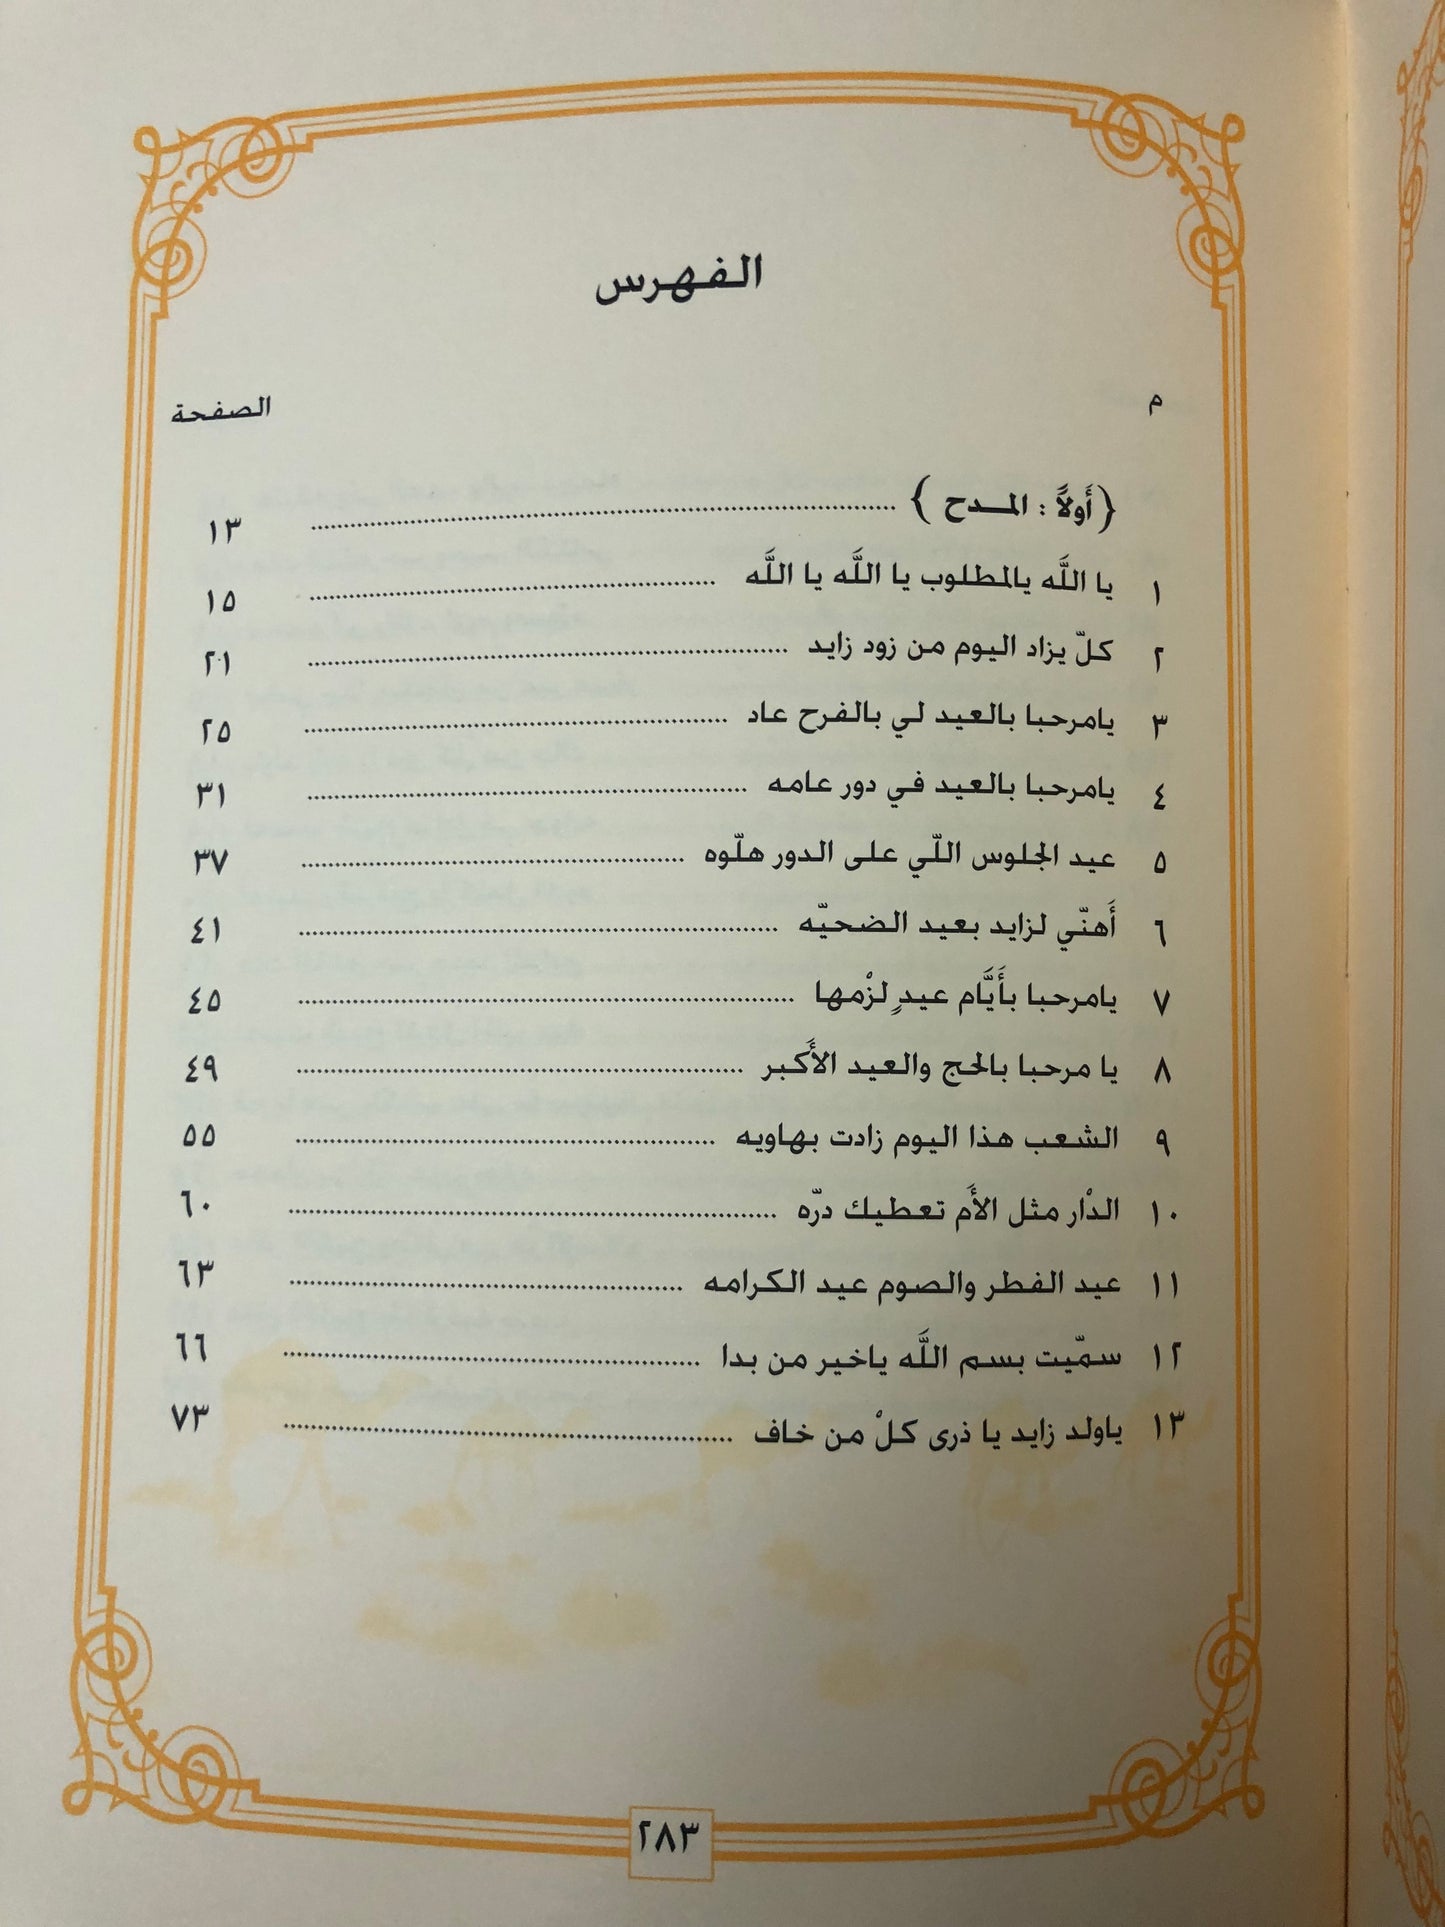 الفهرس
م الصفحة
{ أَولاً : المـدح } ........ ١٣
١ يا اللَّه يالمطلوب يا اللَّه يا اللَّه ........ ١٥
٢ كلّ يزاد اليوم من زود زايد ........ ٢١
٣ يامرحبا بالعيد لي بالفرح عاد ........ ٢٥
٤ يامرحبا بالعيد في دور عامه ........ ٣١
٥ عيد الجلوس اللّي على الدور هلّوه ........ ٣٧
٦ أَهنّي لزايد بعيد الضحيّه ........ ٤١
٧ يامرحبا بأَيَّام عيدٍ لزْمها ........ ٤٥
٨ يا مرحبا بالحج والعيد الأَكبر ........ ٤٩
٩ الشعب هذا اليوم زادت بهاويه ........ ٥٥
١٠ الدْار مثل الأَم تعطيك درّه ........ ٦٠
١١ عيد الفطر والصوم عيد الكرامه ........ ٦٣
١٢ سمّيت بسم اللَّه ياخير من بدا ........ ٦٦
١٣ ياولد زايد يا ذرى كلْ من خاف ........ ٧٣
٢٨٣